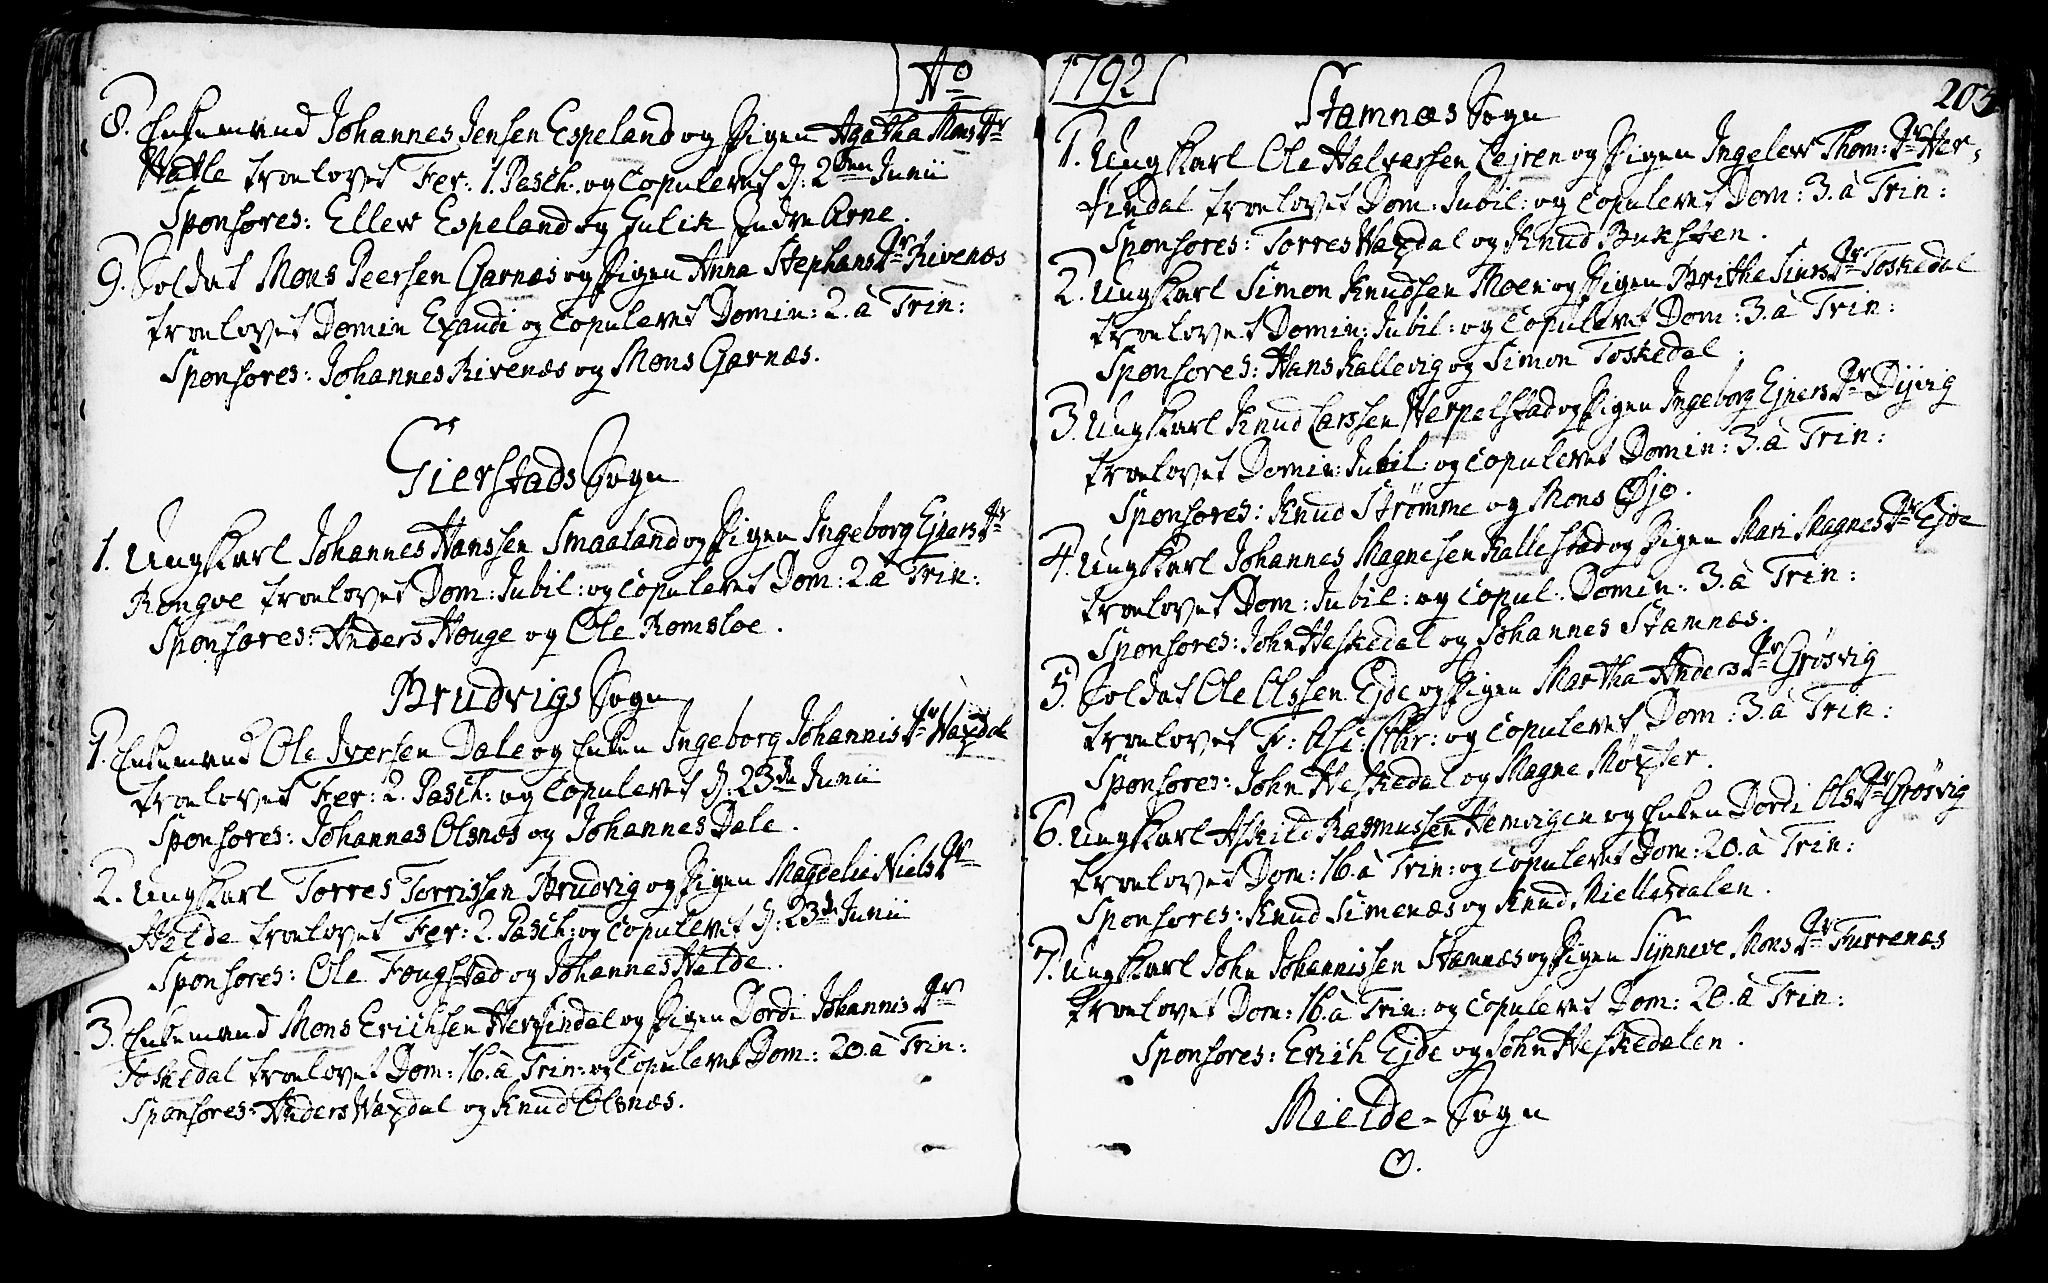 Ao
8. Enkemand Johannes Jensen Espeland og Pigen Agatha Mons Dr
Hatle troelovet Fer: 1. Pasch. og Copuleret d: 2den Junii
Sponsores: Ellew Espeland og Gulik Indre Arne.
9. Soldat Mons Peersen Garnæs og Pigen Anna Stephans Dr Rivenæs
troelovet Domin Exaudi og Copuleret Domin: 2. à Trin:
Sponsores: Johannes Rivenæs og Mons Garnæs.
Gierstads Sogn
1. Ungkarl Johannes Hanssen Smaaland og Pigen Ingeborg Ejvers Dr
Rongve troelovet Dom: Jubil: og Copuleret Dom: 2 à Trin:
Sponsores: Anders Houge og Ole Romsloe.
Brudvigs Sogn
1. Enkemand Ole Iversen Dale og Enken Ingeborg Johannis Dr Waxdal
troelovet Fer: 2. Pasch: og Copuleret d: 23de Junii
Sponsores: Johannes Olsnæs og Johannes Dale.
2. Ungkarl Torres Torrissen Brudvig og Pigen Magdelia Niels Dr
Helde troelovet Fer: 2. Pasch: og Copuleret d: 23de Junii
Sponsores: Ole Fougstad og Johannes Helde.
3. Enkemand Mons Erichsen Herfindal og Pigen Dordi Johannis Dr
Toskedal troelovet Dom: 16. à Trin: og Copuleret Dom: 20. à Trin:
Sponsores: Anders Waxdal og Knud Olsnæs.
1792
205
Stamnæs Sogn
1. Ungkarl Ole Halvarsen Lejren og Pigen Ingelew Thom: Dr Her-
findal troelovet Dom: Jubil: og Copuleret Dom: 3. à Trin:
Sponsores: Torres Waxdal og Knud Buksten.
2. Ungkarl Simon Knudsen Moen og Pigen Brithe Siurs Dr Toskedal
troelovet Domin: Jubil: og Copuleret Dom: 3. à Trin:
Sponsores: Hans Kallevig og Simon Toskedal.
3. Ungkarl Knud Larssen Herpelstad og Pigen Ingeborg Ejvers Dr Dyvig
troelovet Domin: Jubil: og Copuleret Domin: 3. à Trin:
Sponsores: Knud Strømme og Mons Øjo.
4. Ungkarl Johannes Magnesen Kallestad og Pigen Mari Magnes Dr Ejde
troelovet Dom: Jubil: og Copul. Domin: 3. à Trin:
Sponsores: John Heskedal og Johannes Stamnæs.
5. Soldat Ole Olssen Ejde og Pigen Martha Anders Dr Grøsvig
troelovet F: Asc: Chr: og Copuleret Dom: 3. à Trin:
Sponsores: John Heskedal og Magne Moxter.
6. Ungkarl Askild Rasmussen Hemvigen og Enken Dordi Ols Dr Grøsvig
troelovet Dom: 16. à Trin: og Copuleret Dom: 20. à Trin:
Sponsores: Knud Simenæs og Knud Miellvdalen.
7. Ungkarl John Johannissen Stamnæs og Pigen Synneve Mons Dr Furrenæs
troelovet Dom: 16. à Trin: og Copuleret Dom: 20. à Trin:
Sponsores: Erich Ejde og John Heskedalen.
Mielde-Sogn
O.